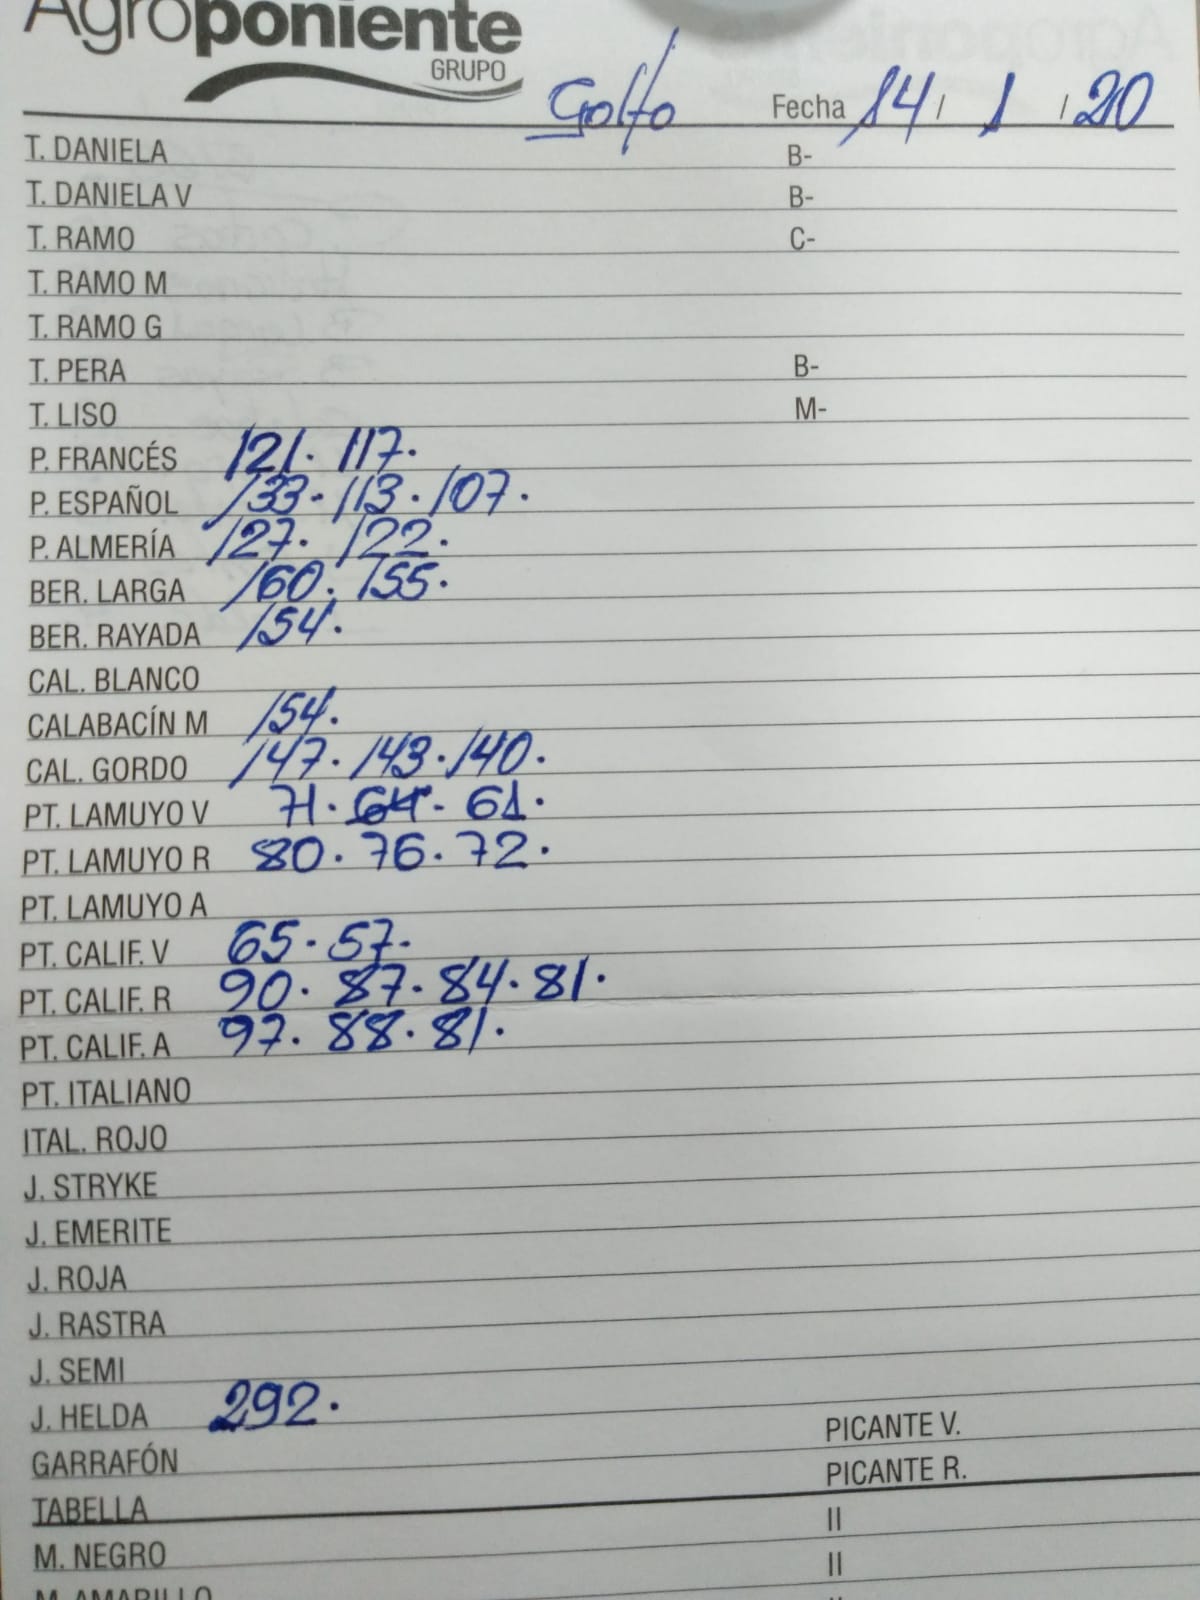 Agroponiente
GRUPO
Golfo Fecha 14 / 1 / 20
T. DANIELA B-
T. DANIELA V B-
T. RAMO C-
T. RAMO M
T. RAMO G
T. PERA B-
T. LISO M-
P. FRANCÉS 121. 117.
P. ESPAÑOL 133. 113. 107.
P. ALMERÍA 127. 122.
BER. LARGA 160. 155.
BER. RAYADA 154.
CAL. BLANCO
CALABACÍN M 154.
CAL. GORDO 147. 143. 140.
PT. LAMUYO V 71. 64. 61.
PT. LAMUYO R 80. 76. 72.
PT. LAMUYO A
PT. CALIF. V 65. 57.
PT. CALIF. R 90. 87. 84. 81.
PT. CALIF. A 97. 88. 81.
PT. ITALIANO
ITAL. ROJO
J. STRYKE
J. EMERITE
J. ROJA
J. RASTRA
J. SEMI
J. HELDA 292.
GARRAFÓN PICANTE V.
TABELLA PICANTE R.
M. NEGRO II
M. AMARILLO II